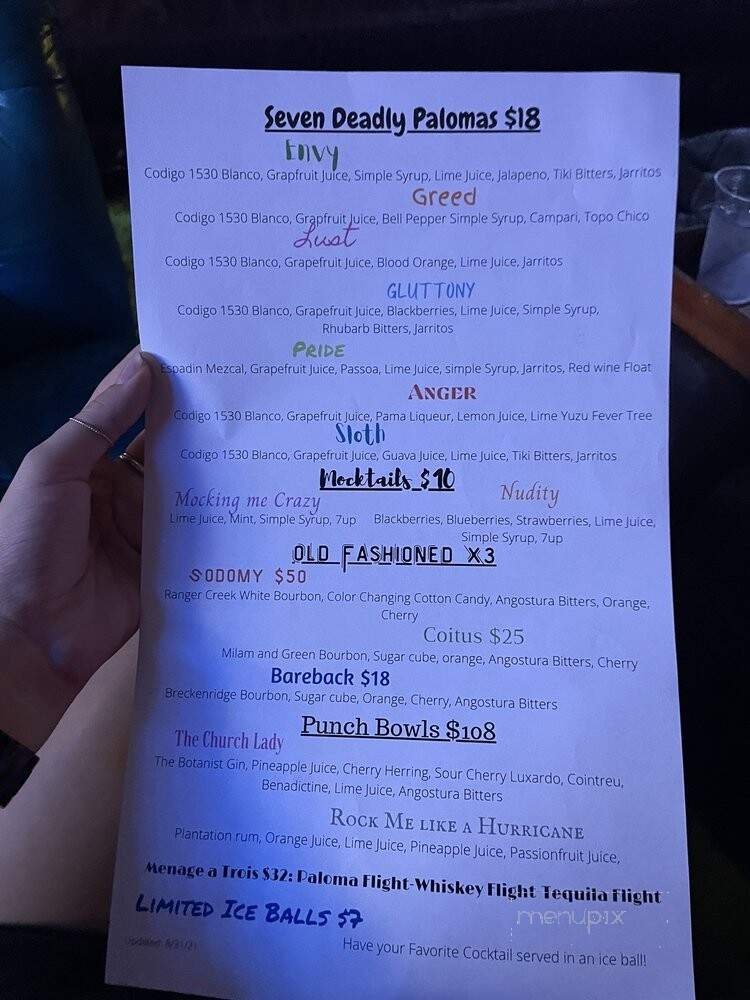 Seven Deadly Palomas $18
Envy
Codigo 1530 Blanco, Grapfruit Juice, Simple Syrup, Lime Juice, Jalapeno, Tiki Bitters, Jarritos
Greed
Codigo 1530 Blanco, Grapfruit Juice, Bell Pepper Simple Syrup, Campari, Topo Chico
Lust
Codigo 1530 Blanco, Grapefruit Juice, Blood Orange, Lime Juice, Jarritos
GLUTTONY
Codigo 1530 Blanco, Grapefruit Juice, Blackberries, Lime Juice, Simple Syrup,
Rhubarb Bitters, Jarritos
PRIDE
Espadin Mezcal, Grapefruit Juice, Passoa, Lime Juice, simple Syrup, Jarritos, Red wine Float
ANGER
Codigo 1530 Blanco, Grapefruit Juice, Pama Liqueur, Lemon Juice, Lime Yuzu Fever Tree
Sloth
Codigo 1530 Blanco, Grapefruit Juice, Guava Juice, Lime Juice, Tiki Bitters, Jarritos
Mocktails $10
Mocking me Crazy
Lime Juice, Mint, Simple Syrup, 7up
Nudity
Blackberries, Blueberries, Strawberries, Lime Juice,
Simple Syrup, 7up
OLD FASHIONED X3
SODOMY $50
Ranger Creek White Bourbon, Color Changing Cotton Candy, Angostura Bitters, Orange,
Cherry
Coitus $25
Milam and Green Bourbon, Sugar cube, orange, Angostura Bitters, Cherry
Bareback $18
Breckenridge Bourbon, Sugar cube, Orange, Cherry, Angostura Bitters
Punch Bowls $108
The Church Lady
The Botanist Gin, Pineapple Juice, Cherry Herring, Sour Cherry Luxardo, Cointreu,
Benadictine, Lime Juice, Angostura Bitters
ROCK ME LIKE A HURRICANE
Plantation rum, Orange Juice, Lime Juice, Pineapple Juice, Passionfruit Juice,
Menage a Trois $32: Paloma Flight-Whiskey Flight Tequila Flight
LIMITED ICE BALLS $7
menupix
Updated: 8/31/21
Have your Favorite Cocktail served in an ice ball!